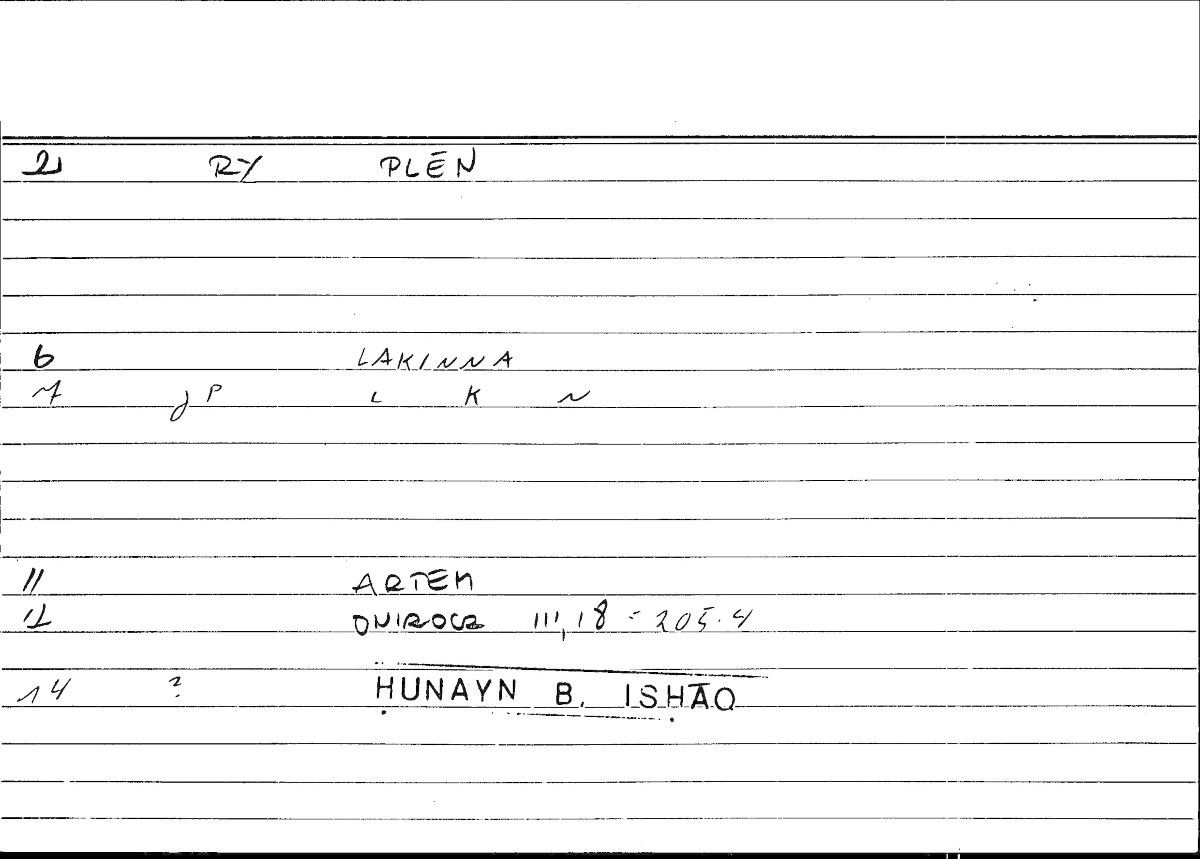 2 RY PLĒN
6 LAKINNA
7 jP L K N
11 ARTEM
12 ONIROCR III,18 = 205.4
14 ? ḤUNAYN B. ISḤĀQ